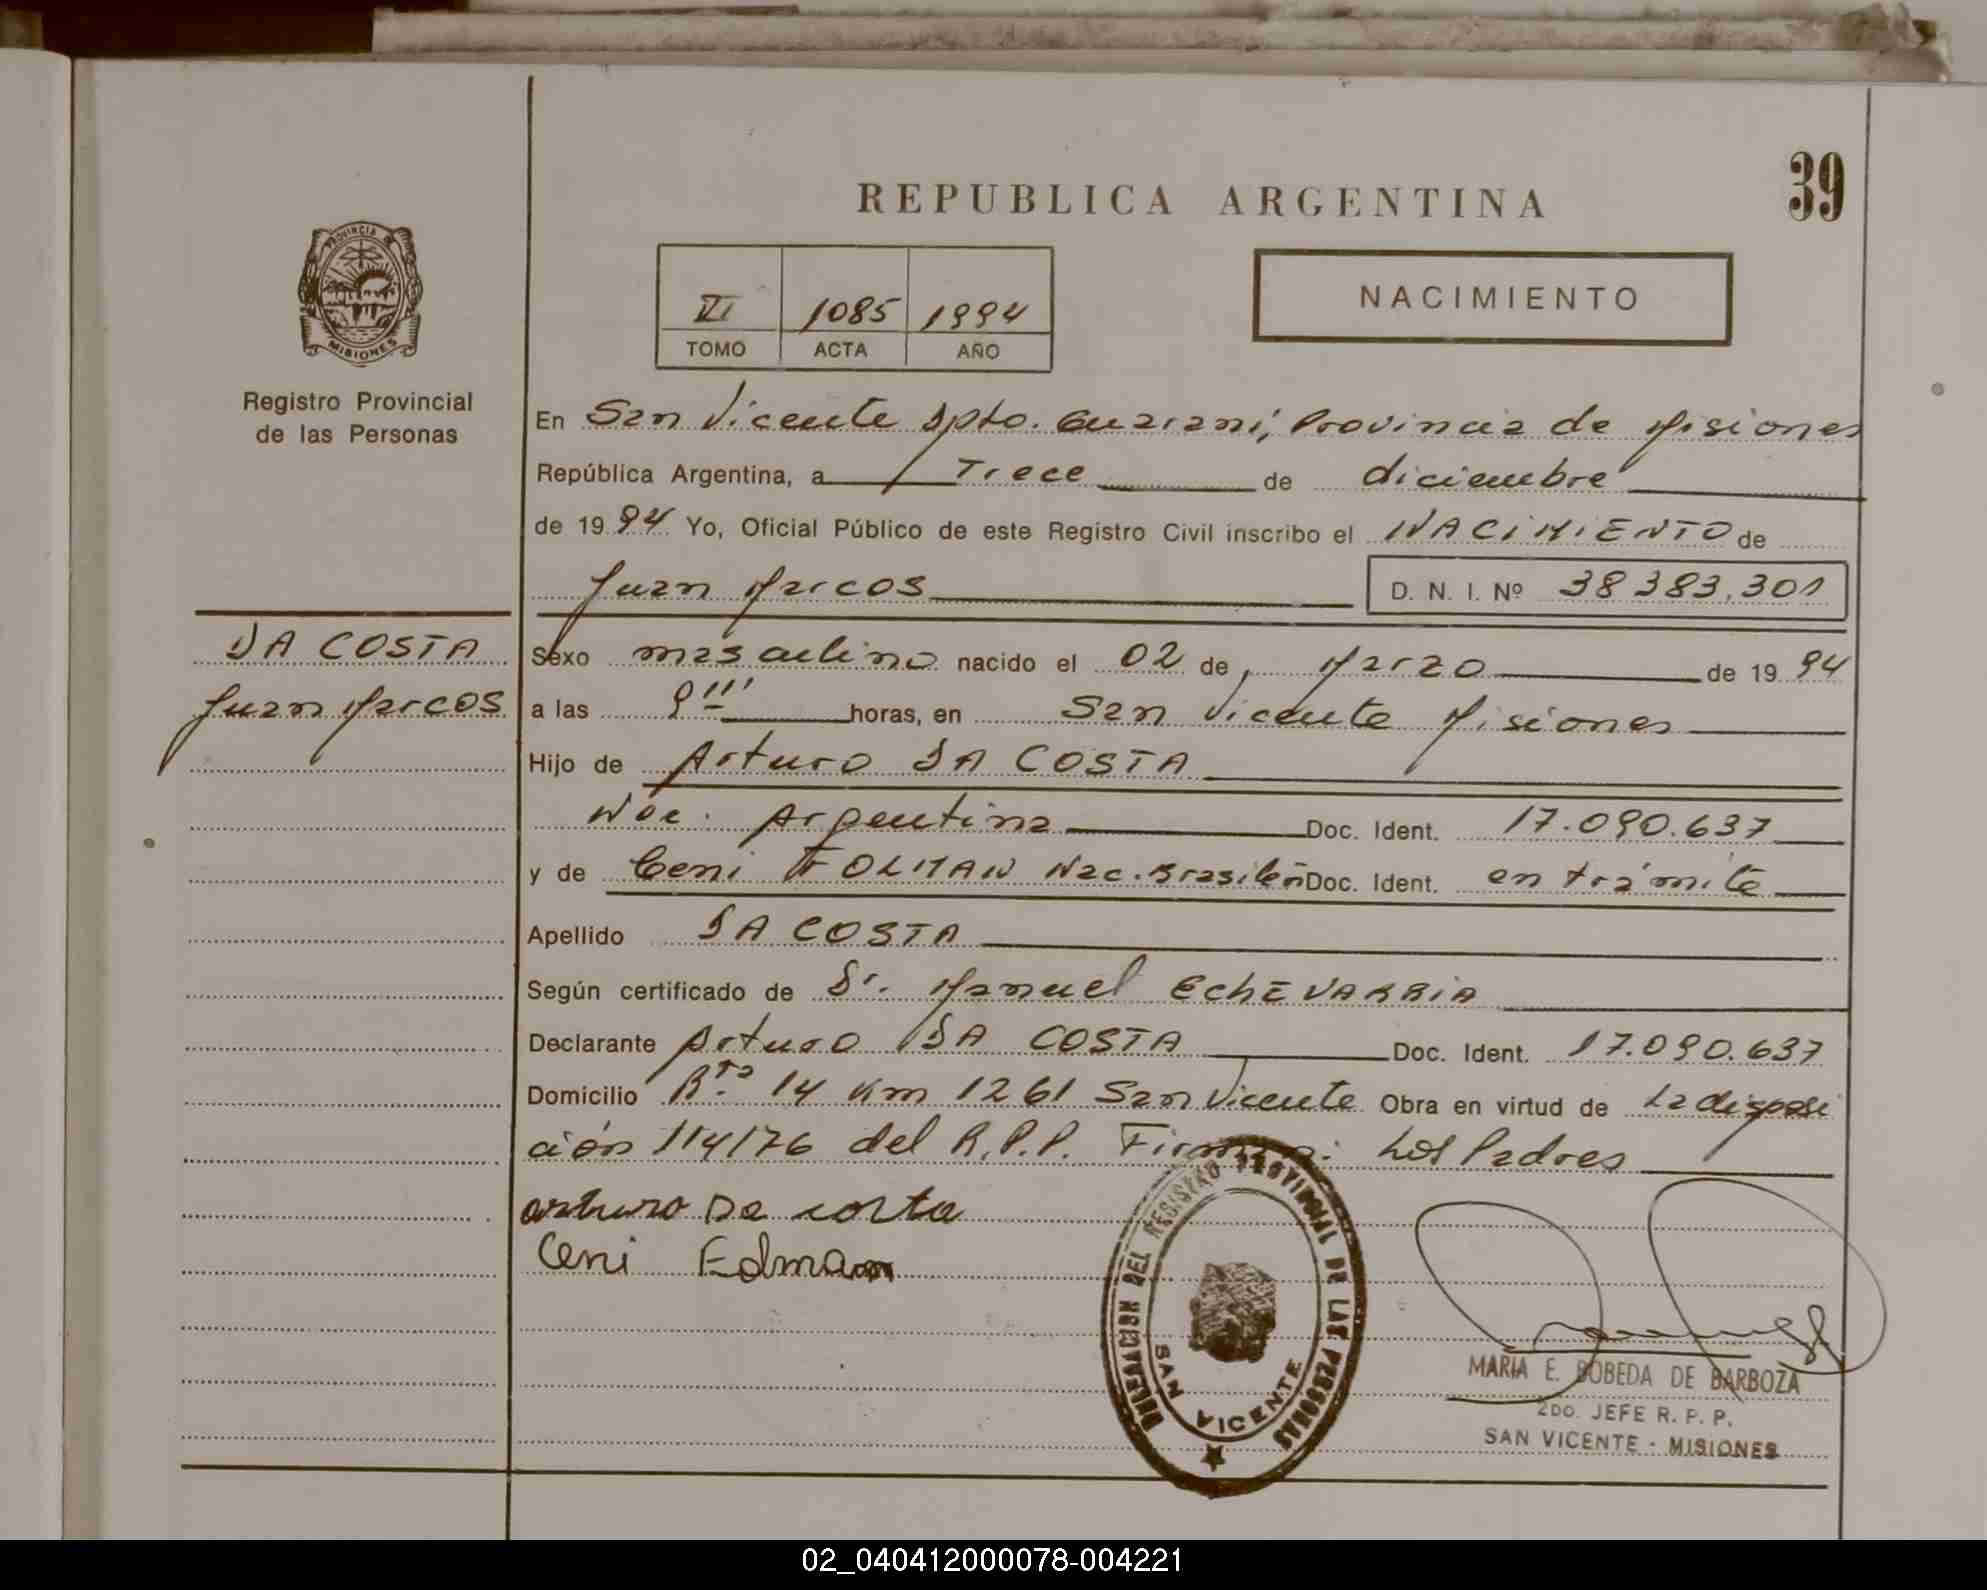 39
REPUBLICA ARGENTINA
PROVINCIA DE
MISIONES
Registro Provincial
de las Personas
VI 1085 1994
TOMO ACTA AÑO
NACIMIENTO
En San Vicente Dpto. Guaraní, Provincia de Misiones
República Argentina, a Trece de diciembre
de 1994 Yo, Oficial Público de este Registro Civil inscribo el NACIMIENTO de
Juan Marcos D. N. I. Nº 38383.301
DA COSTA
Juan Marcos
Sexo masculino nacido el 02 de Marzo de 1994
a las horas, en San Vicente Misiones
Hijo de Arturo DA COSTA
Nac. Argentina Doc. Ident. 17.090.637
y de Ceni Nac. Doc. Ident. en trámite
Apellido DA COSTA
Según certificado de Dr. Manuel EChEVARRIA
Declarante Arturo DA COSTA Doc. Ident. 17.090.637
Domicilio Rta 14 Km 1261 San Vicente Obra en virtud de La disposi
ción 114/76 del R.P.P. Firman: Los Padres
arturo Da costa
Ceni
DELEGACION DEL REGISTRO PROVINCIAL DE LAS PERSONAS
SAN VICENTE
MARIA E. BOBEDA DE BARBOZA
2DO. JEFE R. P. P.
SAN VICENTE - MISIONES
02_040412000078-004221